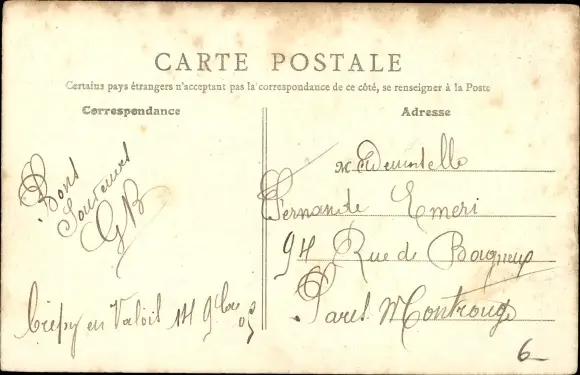 CARTE POSTALE
Certains pays étrangers n'acceptant pas la correspondance de ce côté, se renseigner à la Poste
Correspondance
Bons
Souvenirs
GB
Crépy en Valois 14 9bre 05
Adresse
Mademoiselle
Fernande Emeri
94 Rue de Bagneux
Paris Montrouge
6